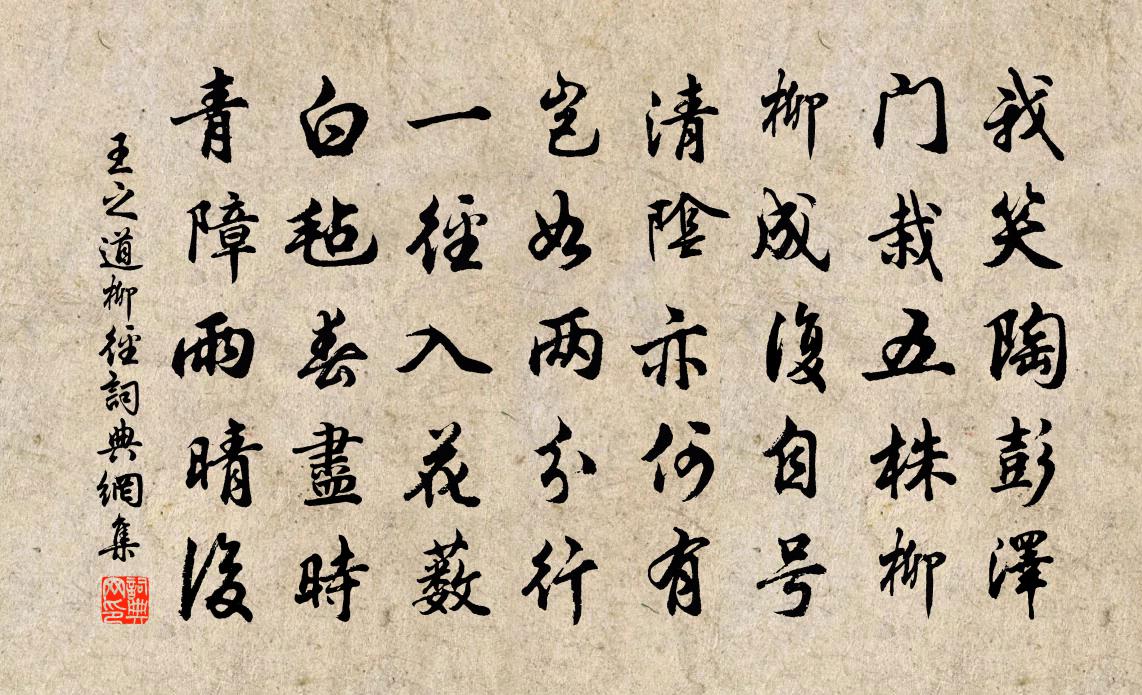 我笑陶彭澤
门栽五株柳
柳成復自号
清陰亦何有
岂如两分行
一徑入花藪
白毡春盡時
青障雨晴後
王之道柳徑詞典網集
詞典网印